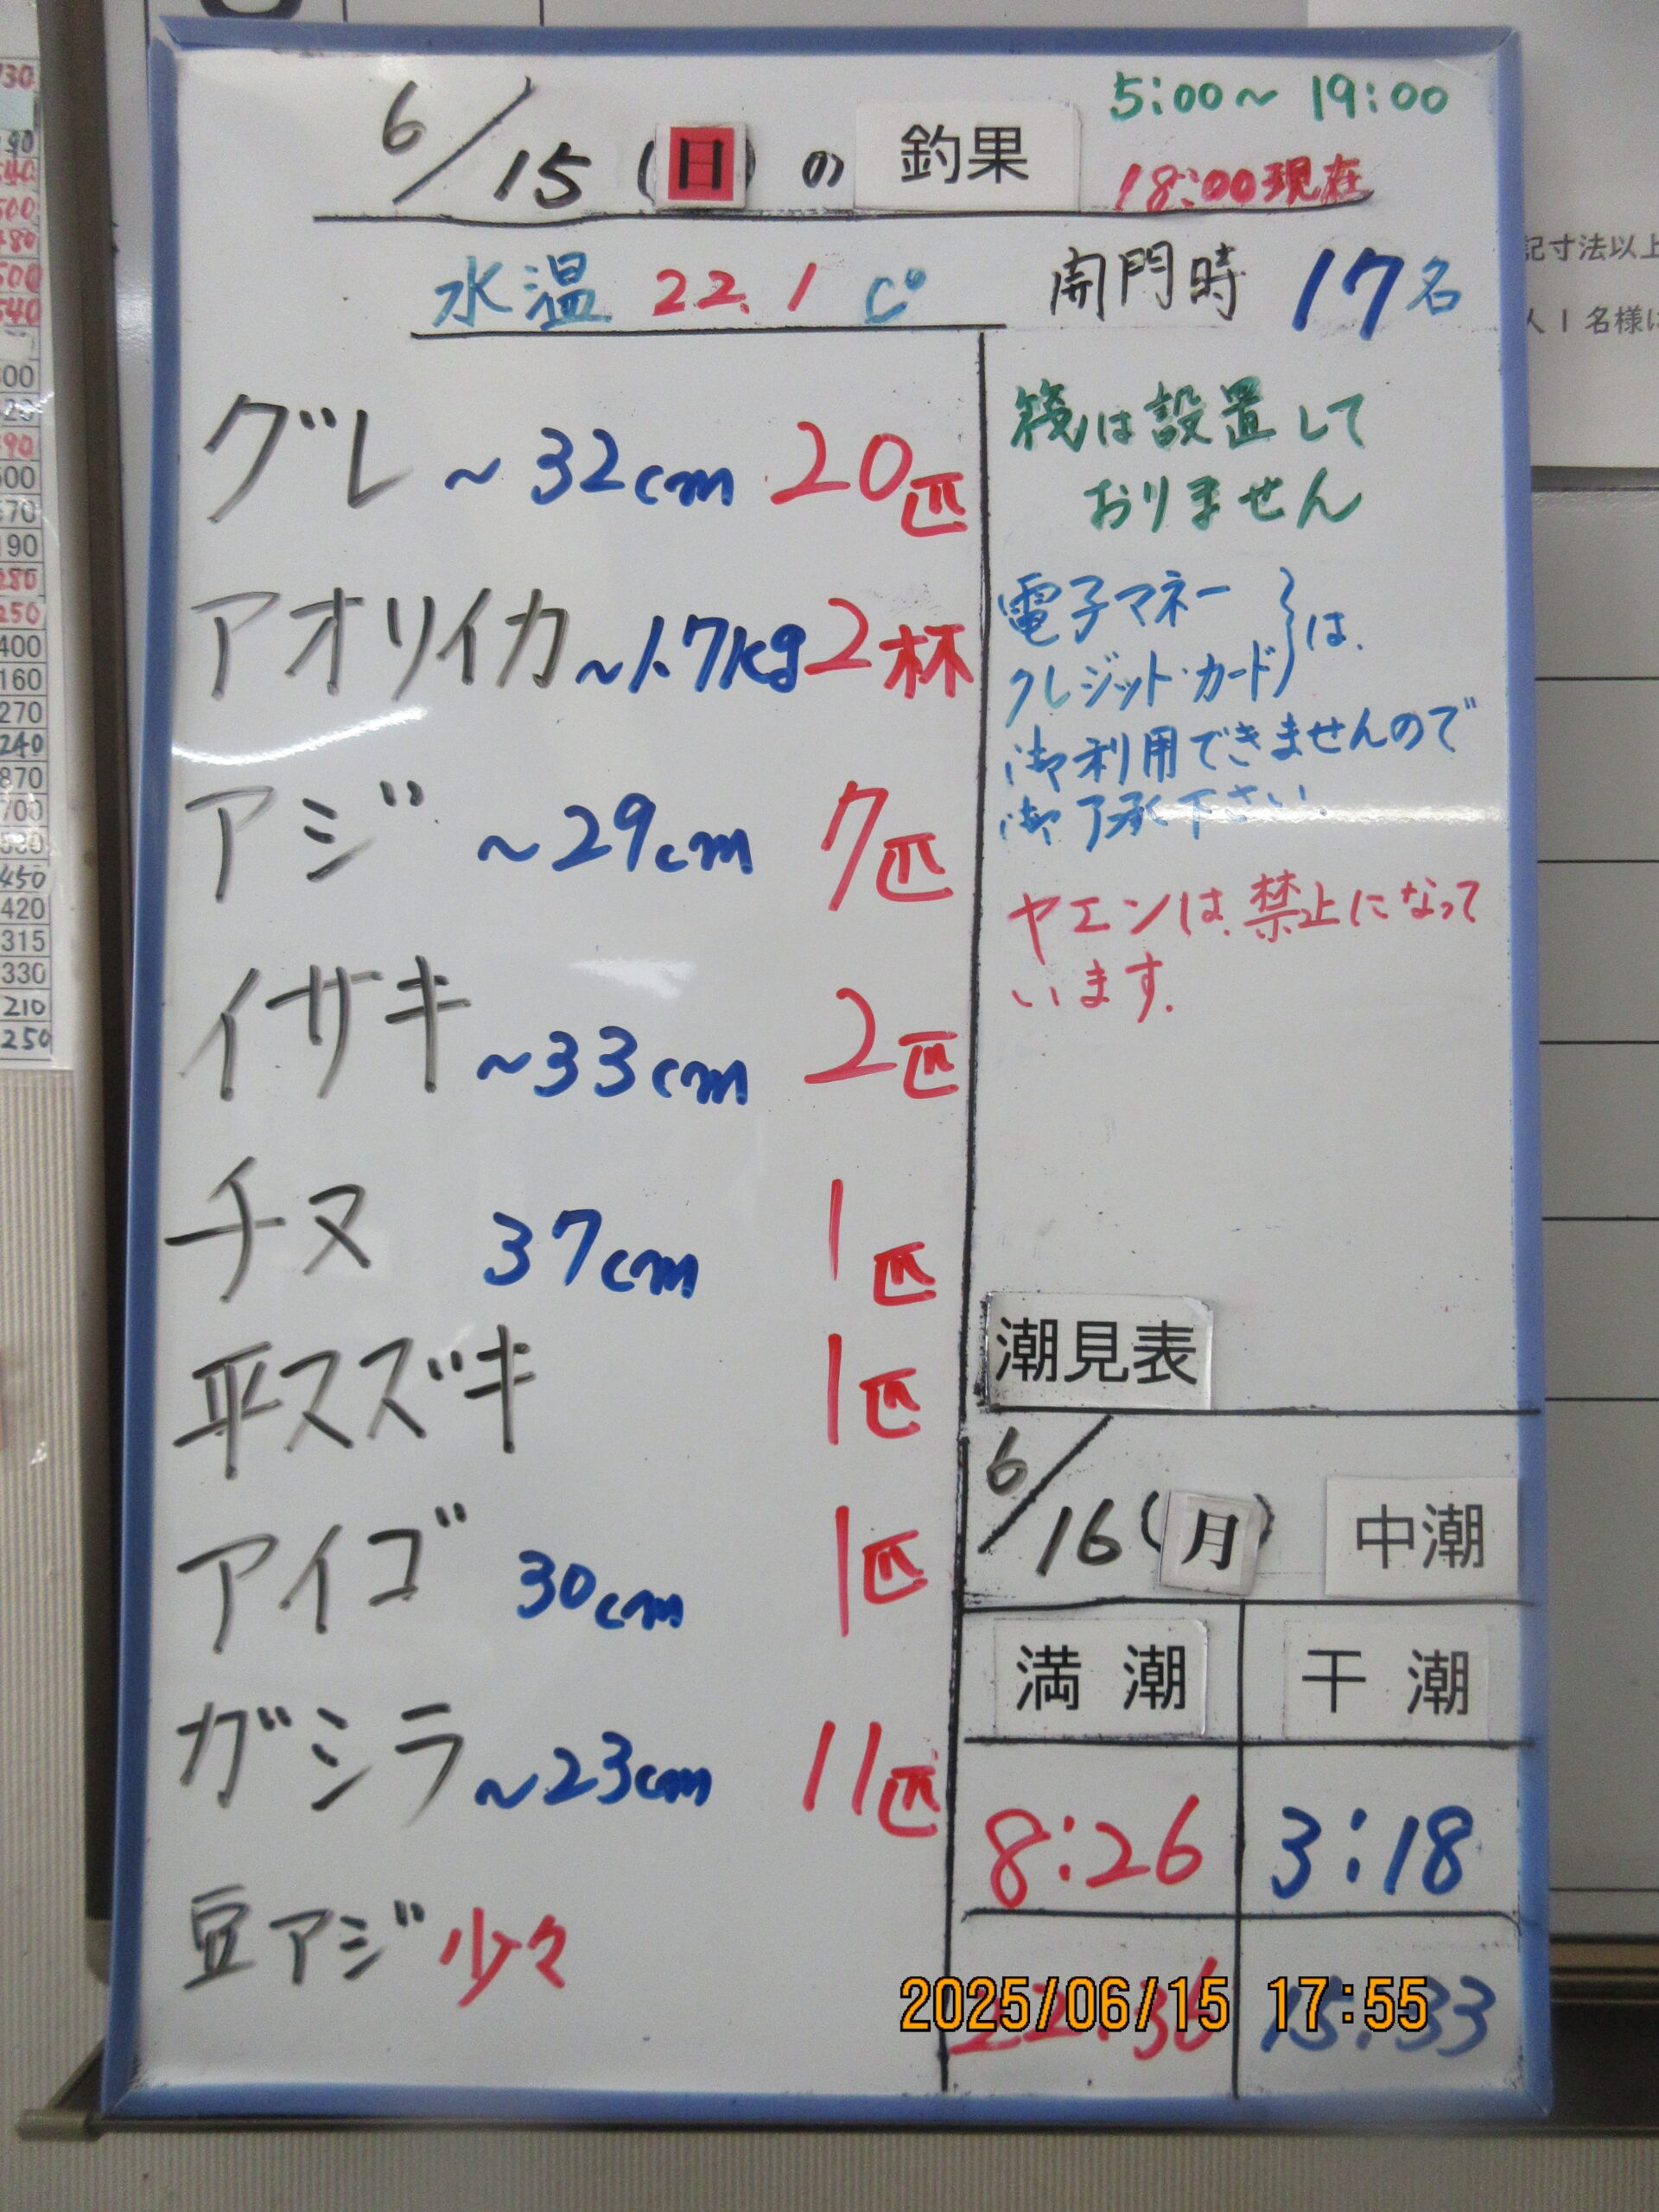 5:00～19:00
6/15(日)の 釣果
18:00現在
水温 22.1 C°
開門時 17名
グレ ～32cm 20匹
アオリイカ ～1.7kg 2杯
アジ ～29cm 7匹
イサキ ～33cm 2匹
チヌ 37cm 1匹
平スズキ 1匹
アイゴ 30cm 1匹
ガシラ ～23cm 11匹
豆アジ 少々
筏は設置して
おりません
電子マネー
クレジット・カード}は、
御利用できませんので
御了承下さい.
ヤエンは、禁止になって
います.
潮見表
6/16(月) 中潮
満潮 干潮
8:26 3:18
22:36 15:33
2025/06/15 17:55
記寸法以上
人1名様に
730
190
540
500
480
500
540
500
670
190
280
250
400
160
270
240
870
700
450
420
315
330
210
250